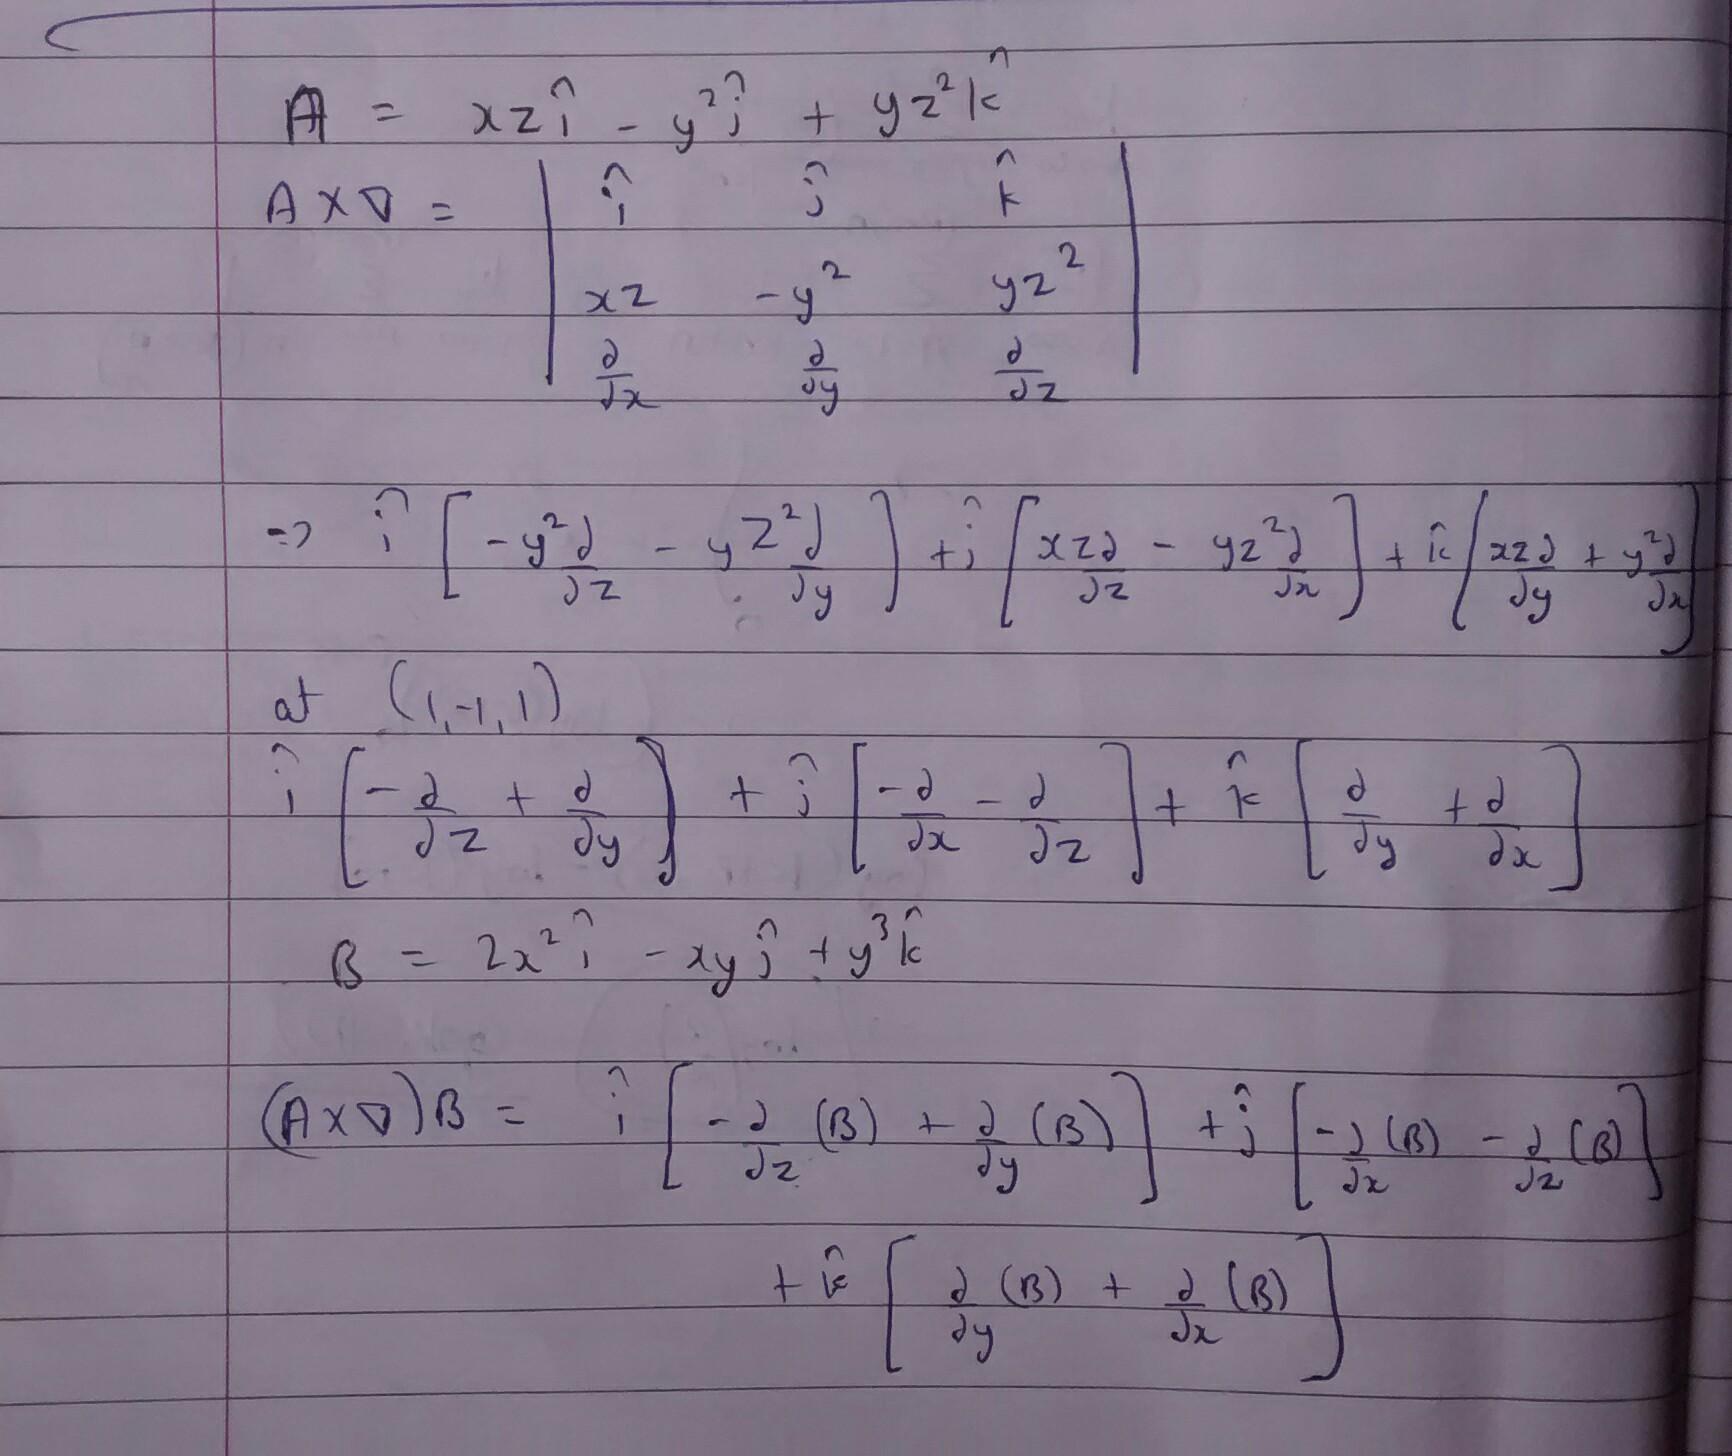 A = xzî - y²ĵ + yz²k̂
A×∇ = | î ĵ k̂ |
| xz -y² yz² |
| ∂/∂x ∂/∂y ∂/∂z |
=> î [-y²∂/∂z - yz²∂/∂y] + ĵ [xz∂/∂z - yz²∂/∂x] + k̂ [xz∂/∂y + y²∂/∂x]
at (1,-1,1)
î [-∂/∂z + ∂/∂y] + ĵ [-∂/∂x - ∂/∂z] + k̂ [∂/∂y + ∂/∂x]
B = 2x²î - xyĵ + y³k̂
(A×∇)B = î [-∂/∂z (B) + ∂/∂y (B)] + ĵ [-∂/∂x (B) - ∂/∂z (B)]
+ k̂ [∂/∂y (B) + ∂/∂x (B)]